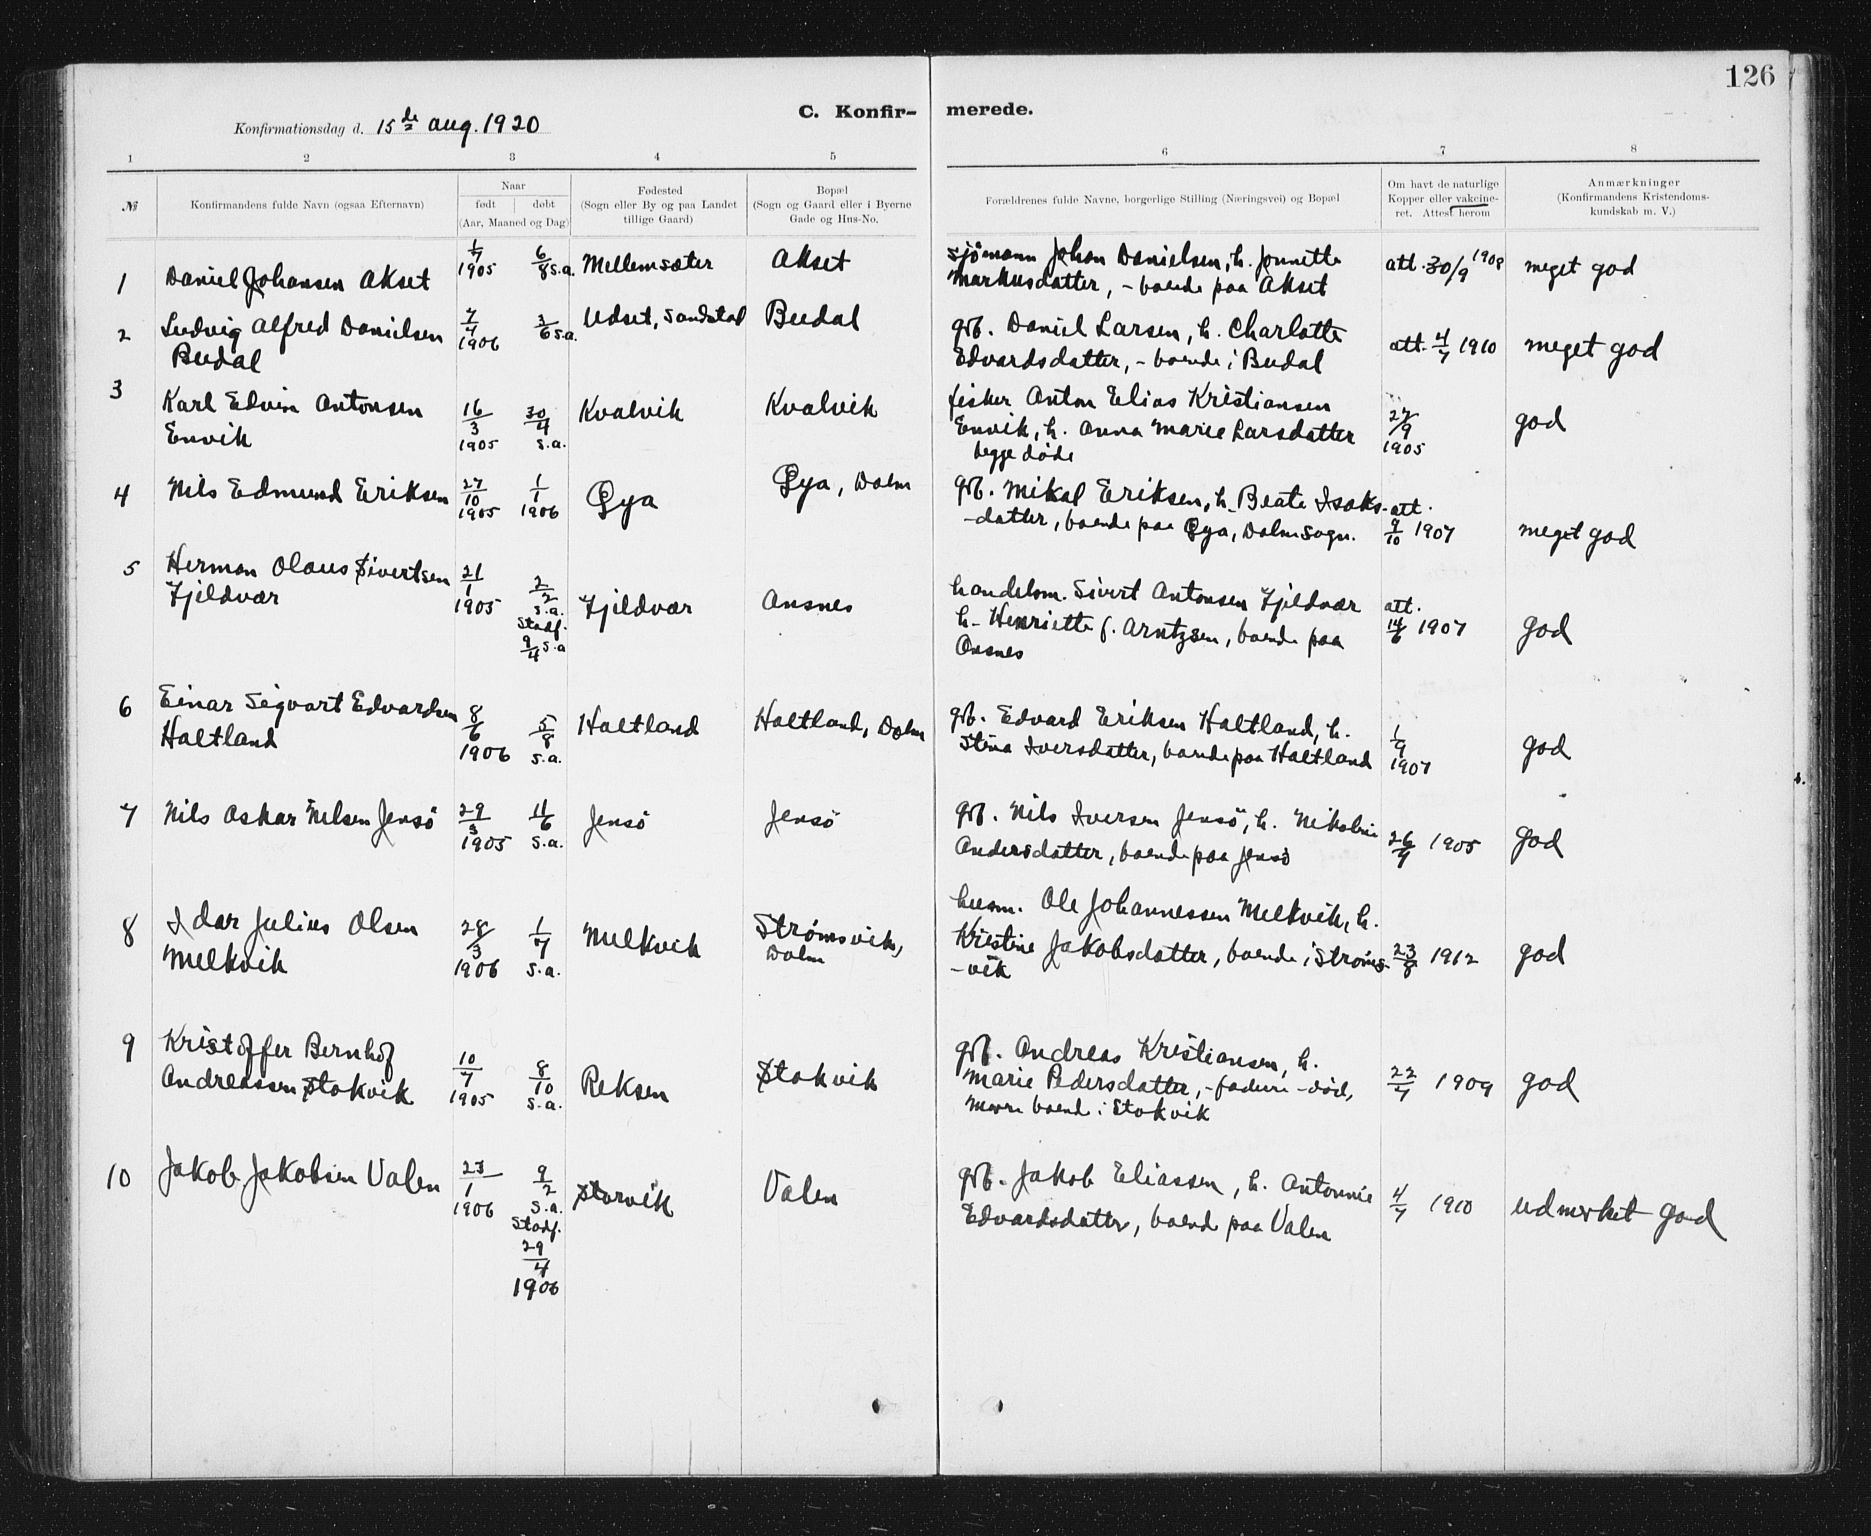 126
C. Konfirmerede.
Konfirmationsdag d. 15de aug. 1920
1 2 3 4 5 6 7 8
№ Konfirmandens fulde Navn (ogsaa Efternavn) Naar født døbt (Aar, Maaned og Dag) Fødested (Sogn eller By og paa Landet tillige Gaard) Bopæl (Sogn og Gaard eller i Byerne Gade og Hus-No. Forældrenes fulde Navne, borgerlige Stilling (Næringsvei) og Bopæl Om havt de naturlige Kopper eller vakcineret. Attest herom Anmærkninger (Konfirmandens Kristendomskundskab m. V.)
1 Daniel Johansen Akset 1/7 1905 6/8 s.a. Mellemsæter Akset sjömann Johan Danielsen, h. Jonnette Markusdatter, - boende paa Akset att. 30/9 1908 meget god
2 Ludvig Alfred Danielsen Budal 7/4 1906 3/6 s.a. Udset, Sandstad Budal gbr. Daniel Larsen, h. Charlotte Edvardsdatter, - boende i Budal att. 4/7 1910 meget god
3 Karl Edvin Antonsen Envik 16/3 1905 30/4 s.a. Kvalvik Kvalvik fisker Anton Elias Kristiansen Envik, h. Anna Marie Larsdatter begge døde 27/9 1905 god
4 Nils Edmund Eriksen 27/10 1905 1/1 1906 Gya Gya, Dolm gbr. Mikal Eriksen, h. Beate Isaks-datter, boende paa Gya, Dolm sogn. att. 9/10 1907 meget god
5 Herman Olaus Sivertsen Fjeldvær 21/1 1905 2/2 s.a. Stadf. 9/4 s.a Fjildvær Ansnes handelsm. Sivert Antonsen Fjildvær h. Henriette f. Arntzsen, boende paa Ansnes att. 14/6 1907 god
6 Einar Sigvart Edvardsen Haltland 8/6 1906 5/8 s.a. Haltland Haltland, Dolm gbr. Edvard Eriksen Haltland, h. Stina Iversdatter, boende paa Haltland 1/9 1907 god
7 Nils Oskar Nilsen Jensö 29/3 1905 11/6 s.a. Jensö Jensö gbr. Nils Iversen Jensö, h. Nikoline Andersdatter, boende paa Jensö 26/9 1905 god
8 Idar Julius Olsen Melkvik 28/3 1906 1/7 s.a. Melkvik Strømsvik, Dolm husm. Ole Johannessen Melkvik, h. Kristine Jakobsdatter, boende i Strøms-vik 23/8 1912 god
9 Kristoffer Bernhof Andreassen Stokvik 10/7 1905 8/10 s.a. Reksen Stokvik gbr. Andreas Kristiansen, h. Marie Pedersdatter, - faderen død, moren boende i Stokvik 22/7 1909 god
10 Jakob Jakobsen Valen 23/1 1906 9/2 s.a. Stadf. 29/4 1906 Storvik Valen gbr. Jakob Eliassen, h. Antonnie Edvardsdatter, boende paa Valen 4/7 1910 udmerket god